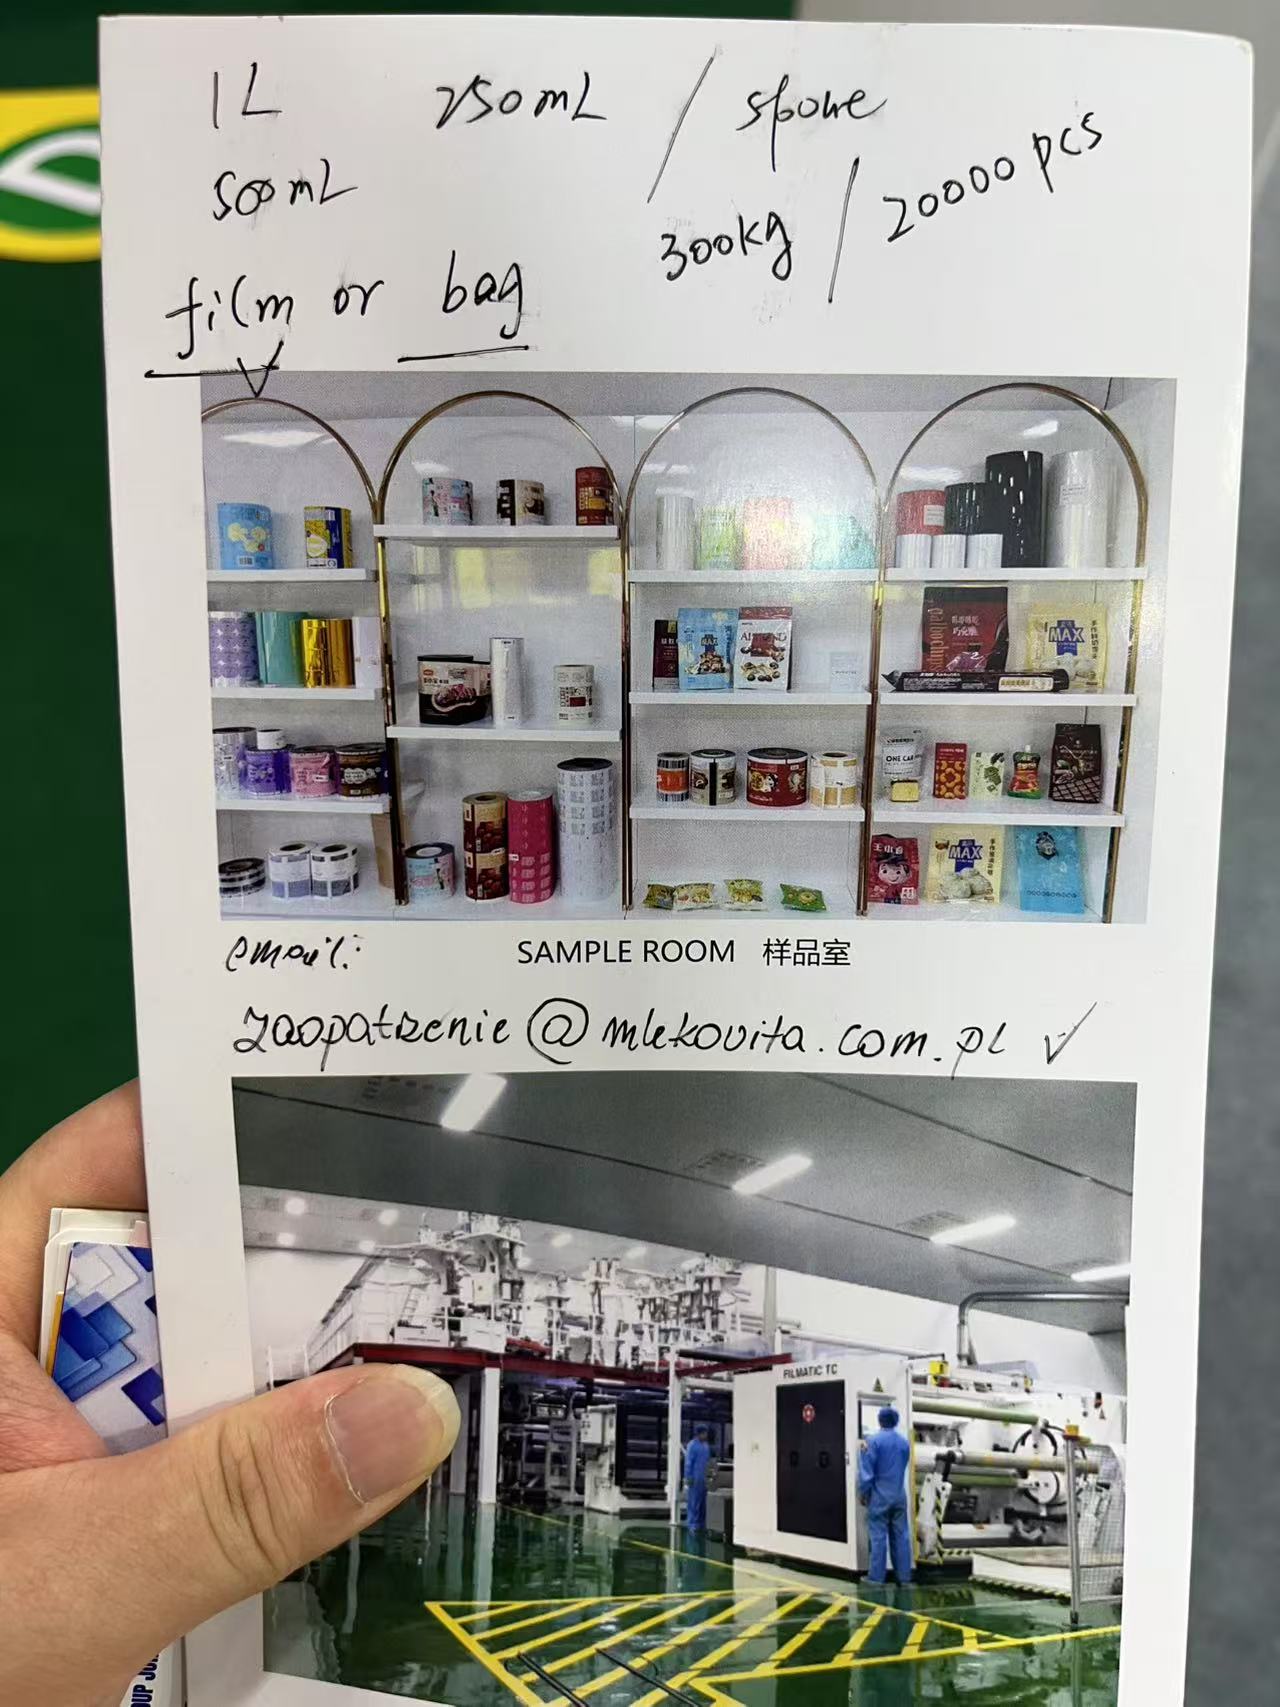 1L 250mL / spoue
500mL 300kg / 20000 pcs
film or bag
MAX
MAX
ONE CA
MAX
email:
SAMPLE ROOM 样品室
zaopatrzenie@mlekovita.com.pl ✓
FILMATIC TC